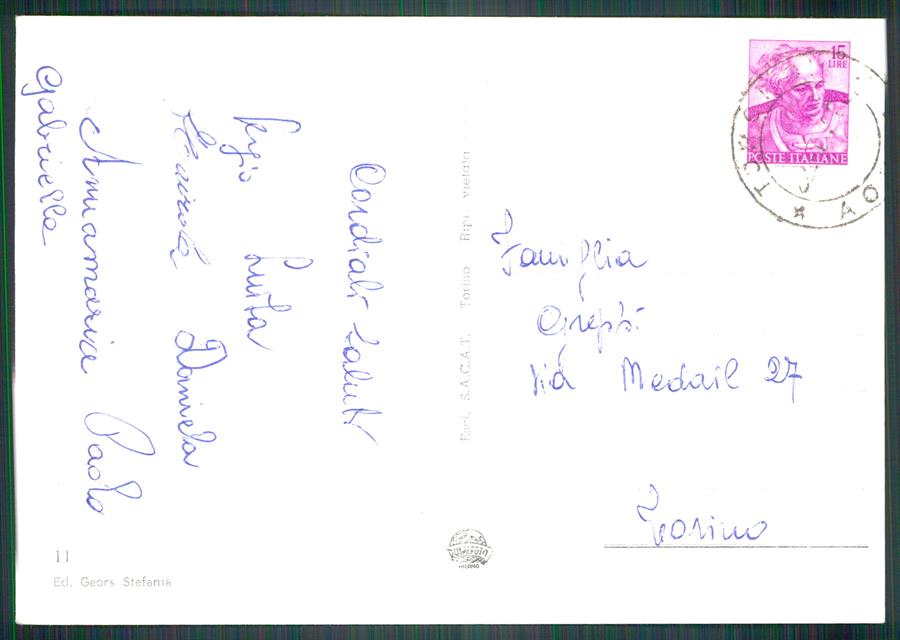 Cordiali saluti
Sergio Luisa
Daniela
Annamaria Paolo
Gabriella
15
LIRE
POSTE ITALIANE
AO
Famiglia
Via Medail 27
Torino
S.A.C.A.T. Torino Ripr. vietata
11
Ed. Geors Stefania
MILANO